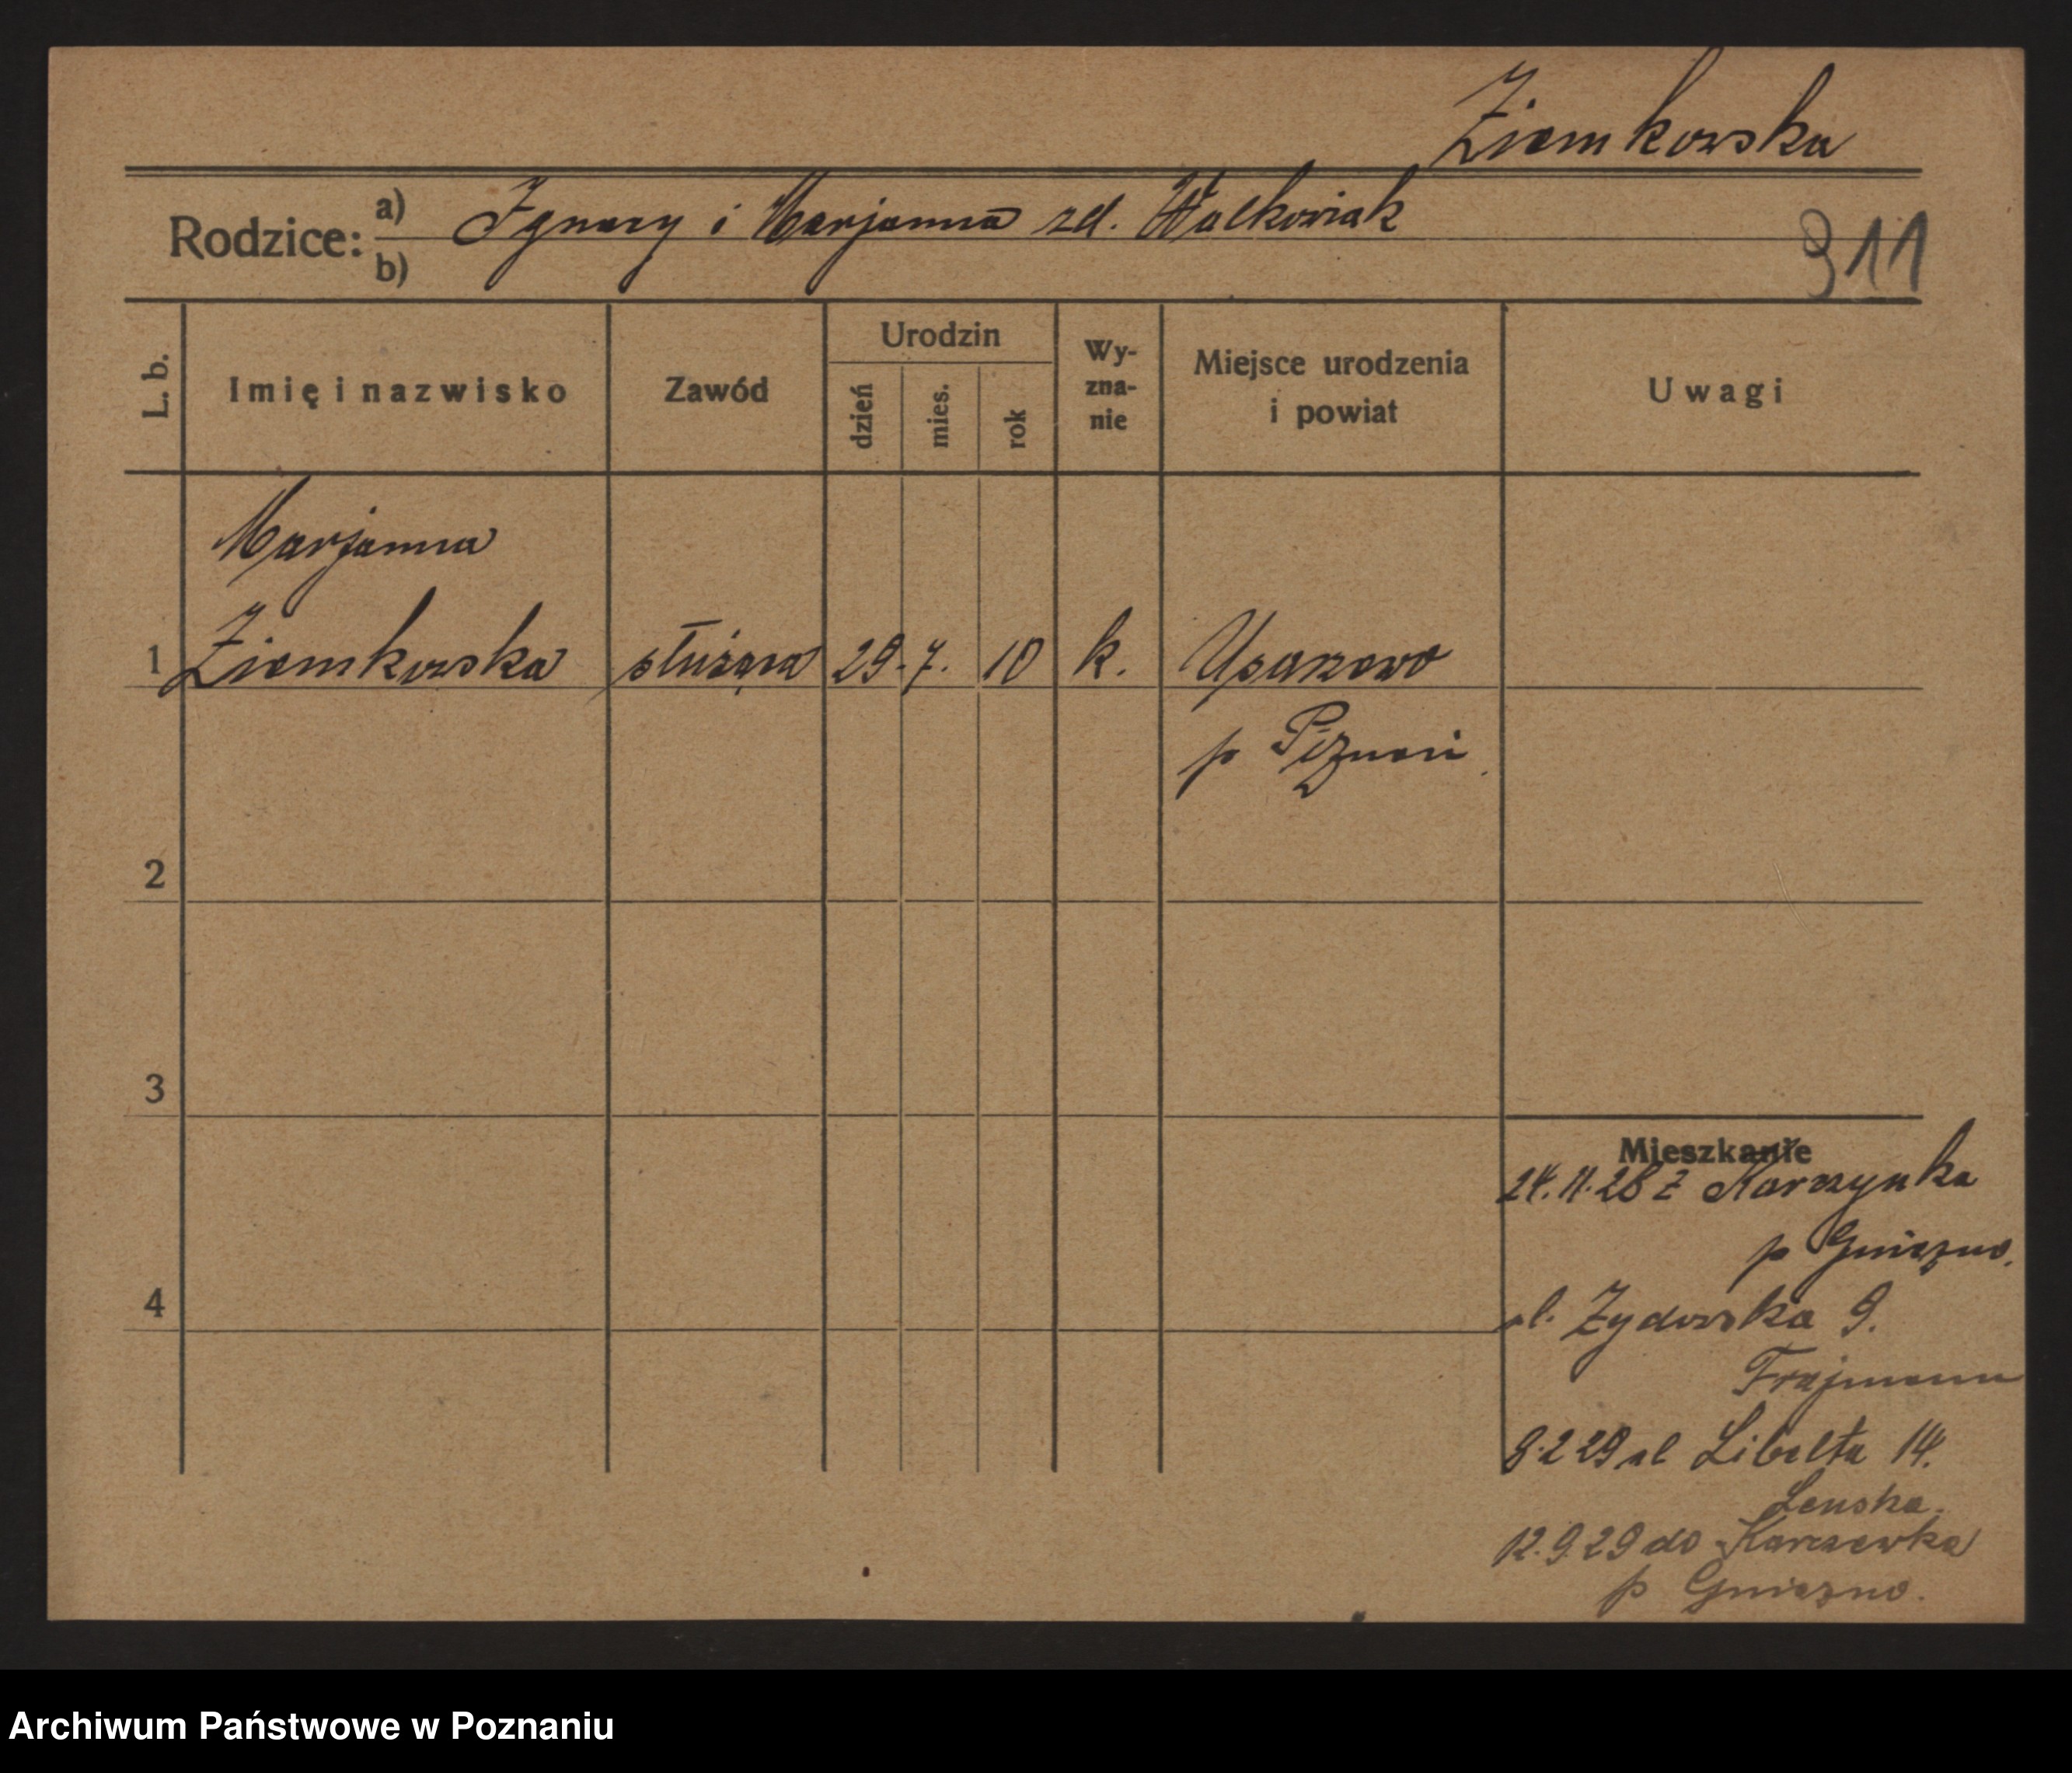 Ziemkowska
Rodzice: a) Ignacy i Marjanna zd. Walkowiak
b)
311
L. b.
Imię i nazwisko
Zawód
Urodzin
dzień
mies.
rok
Wy-
zna-
nie
Miejsce urodzenia
i powiat
Uwagi
Marjanna
1 Ziemkowska służąca 29. 7. 10 k. Uzarzewo
p Poznań
2
3
Mieszkanie
24.11.28 z Karczynka
p Gniezno.
4
ul. Żydowska 9.
Frajmann
8.2 29 ul Libelta 14.
Lenska.
12.9.29 do Karczewka
p Gniezno.
Archiwum Państwowe w Poznaniu